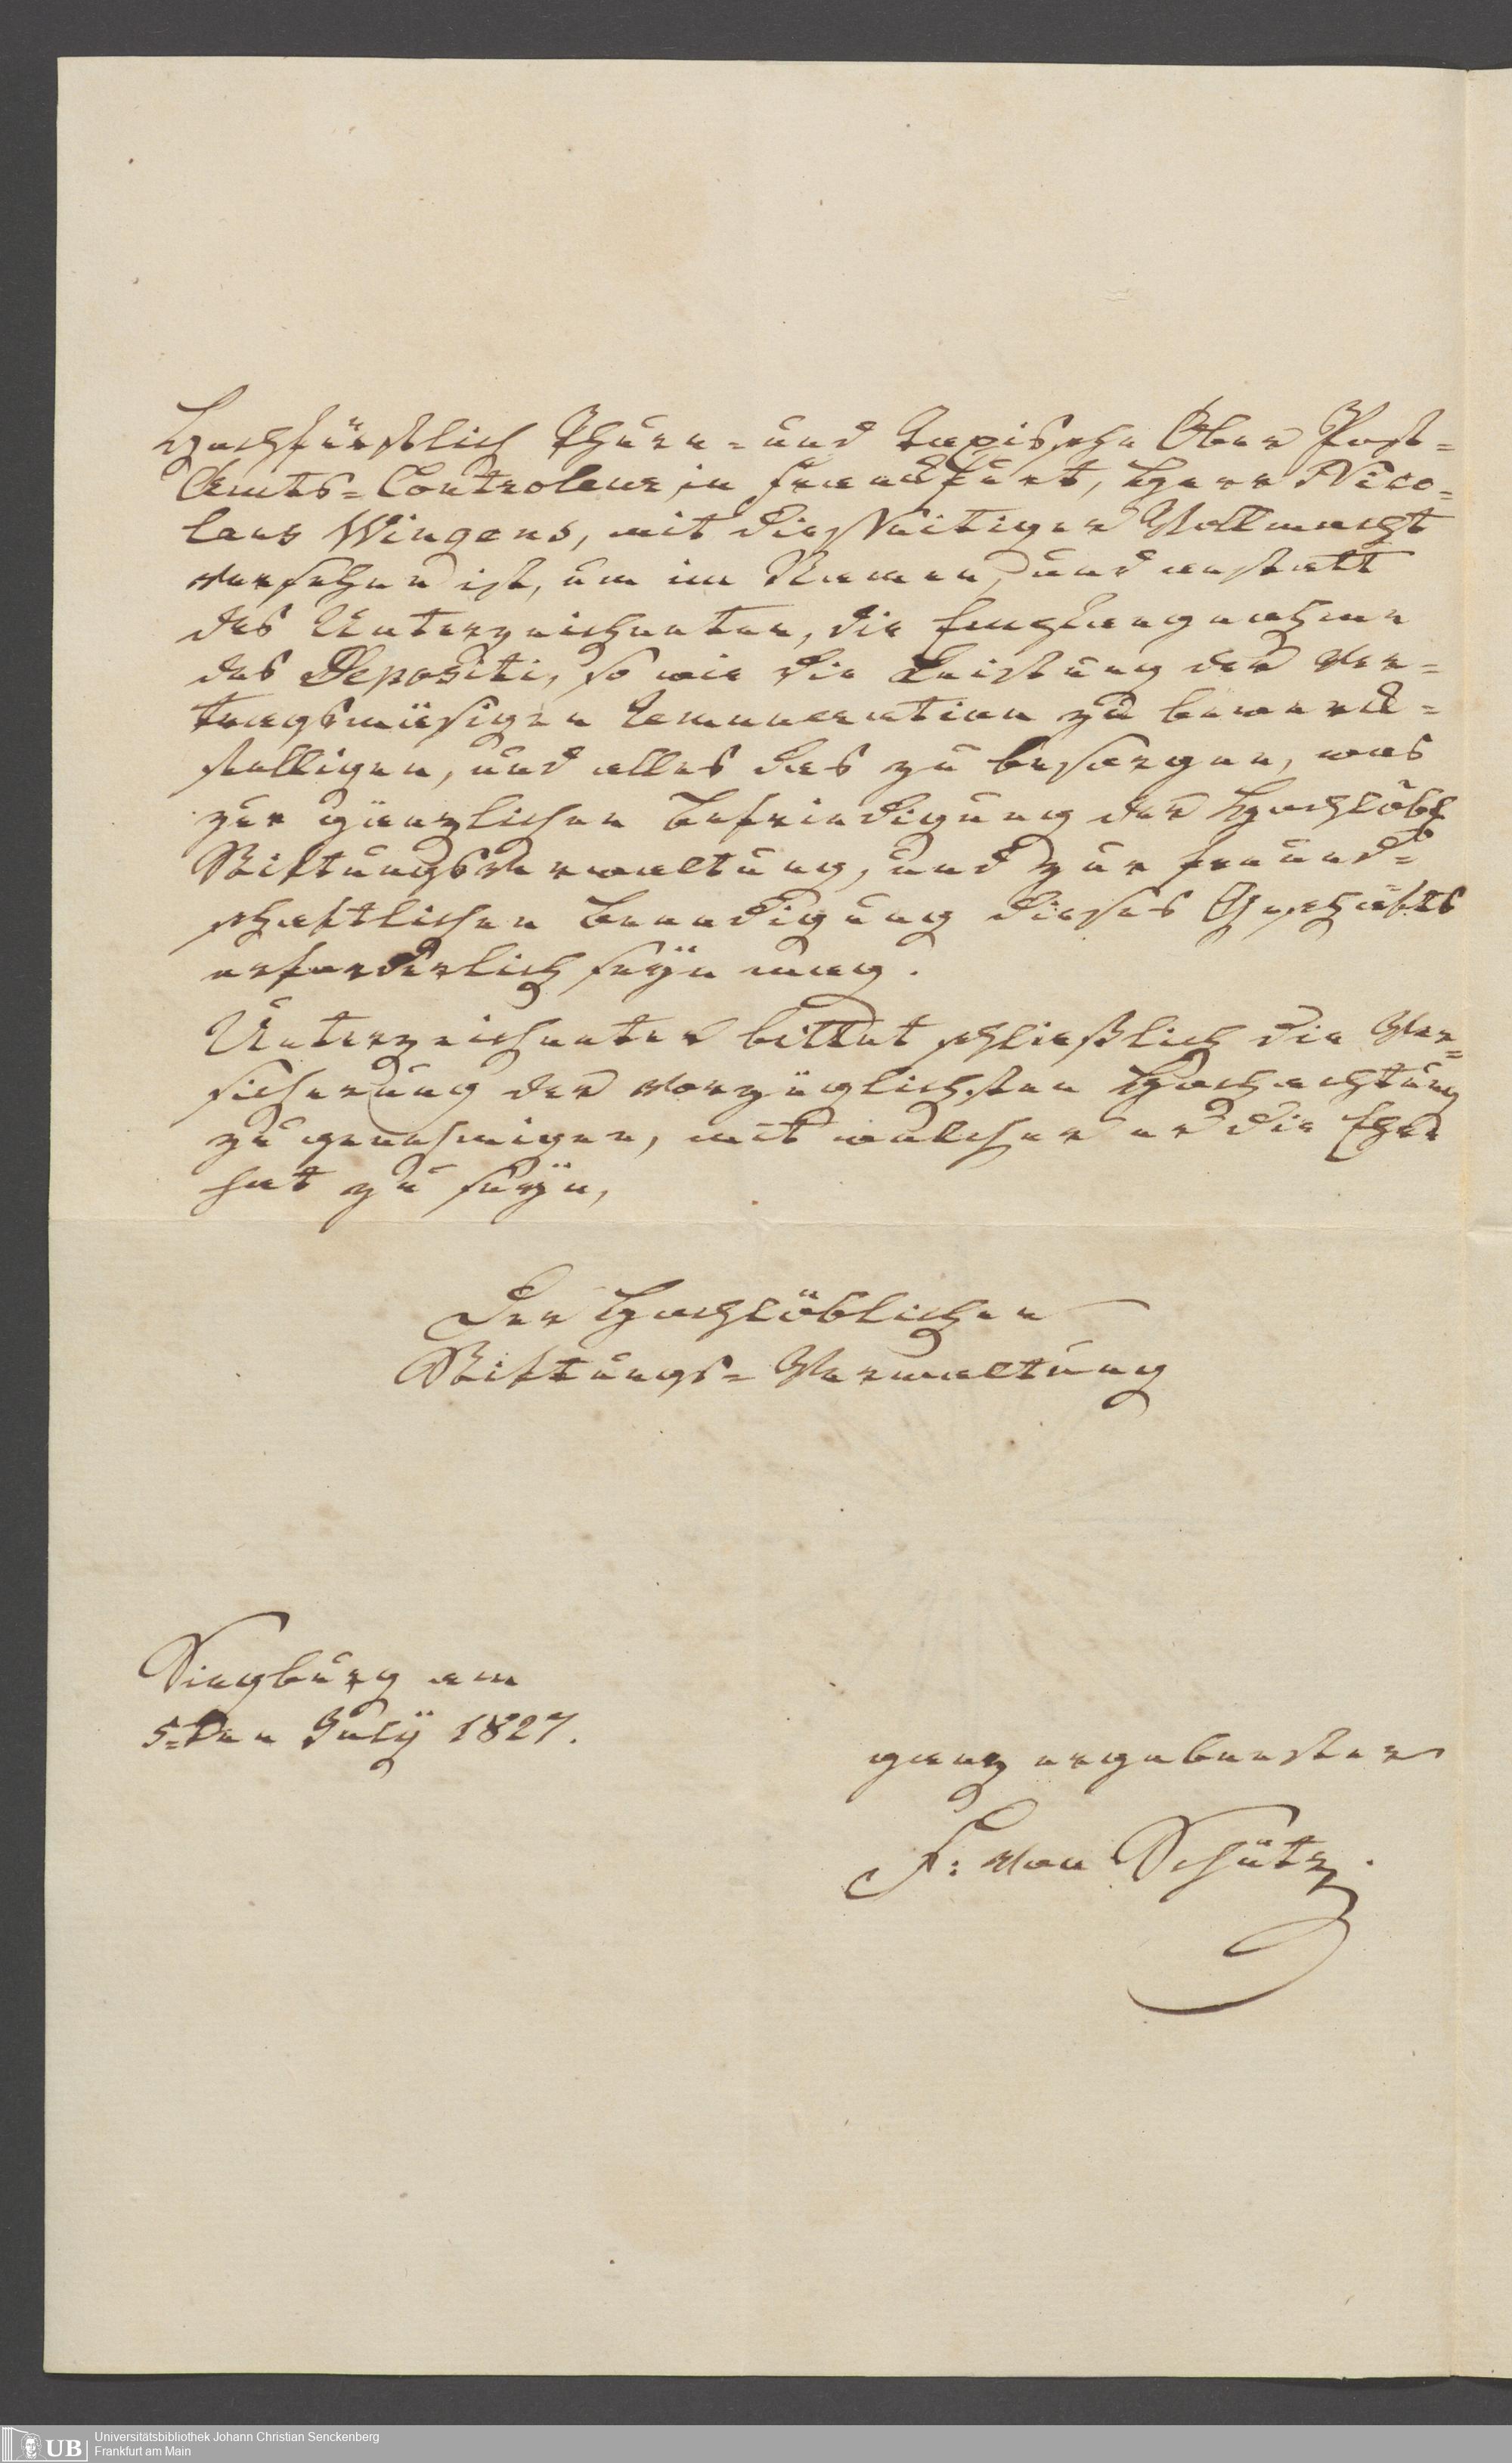 Hochfürstlich Thurn- und Taxissche Ober Post-
Amts-Controleur in Franckfurt, Herr Nico-
laus Wingens, mit diesseitiger Vollmacht
versehen ist, um im Namen, und anstatt
des Unterzeichneten, die Empfangnahme
des Depositi, so wie die Leistung der ver-
tragsmäsigen Remuneration zu bewerck-
stelligen, und alles das zu besorgen, was
zur gänzlichen Befriedigung der Hochlöbl
Stiftungsverwaltung, und zur freund-
schaftlichen Beendigung dieses Geschäfts
erforderlich seÿn mag.
Unterzeichneter bittet schließlich die Ver-
sicherung der vorzüglichsten Hochachtung
zu genehmigen, mit welcher er die Ehre
hat zu seÿn,
Der Hochlöblichen
Stiftungs-Verwaltung
Siegburg am
5-ten Julÿ 1827.
ganz ergebenster
F: von Schütz.
UB
Universitätsbibliothek Johann Christian Senckenberg
Frankfurt am Main